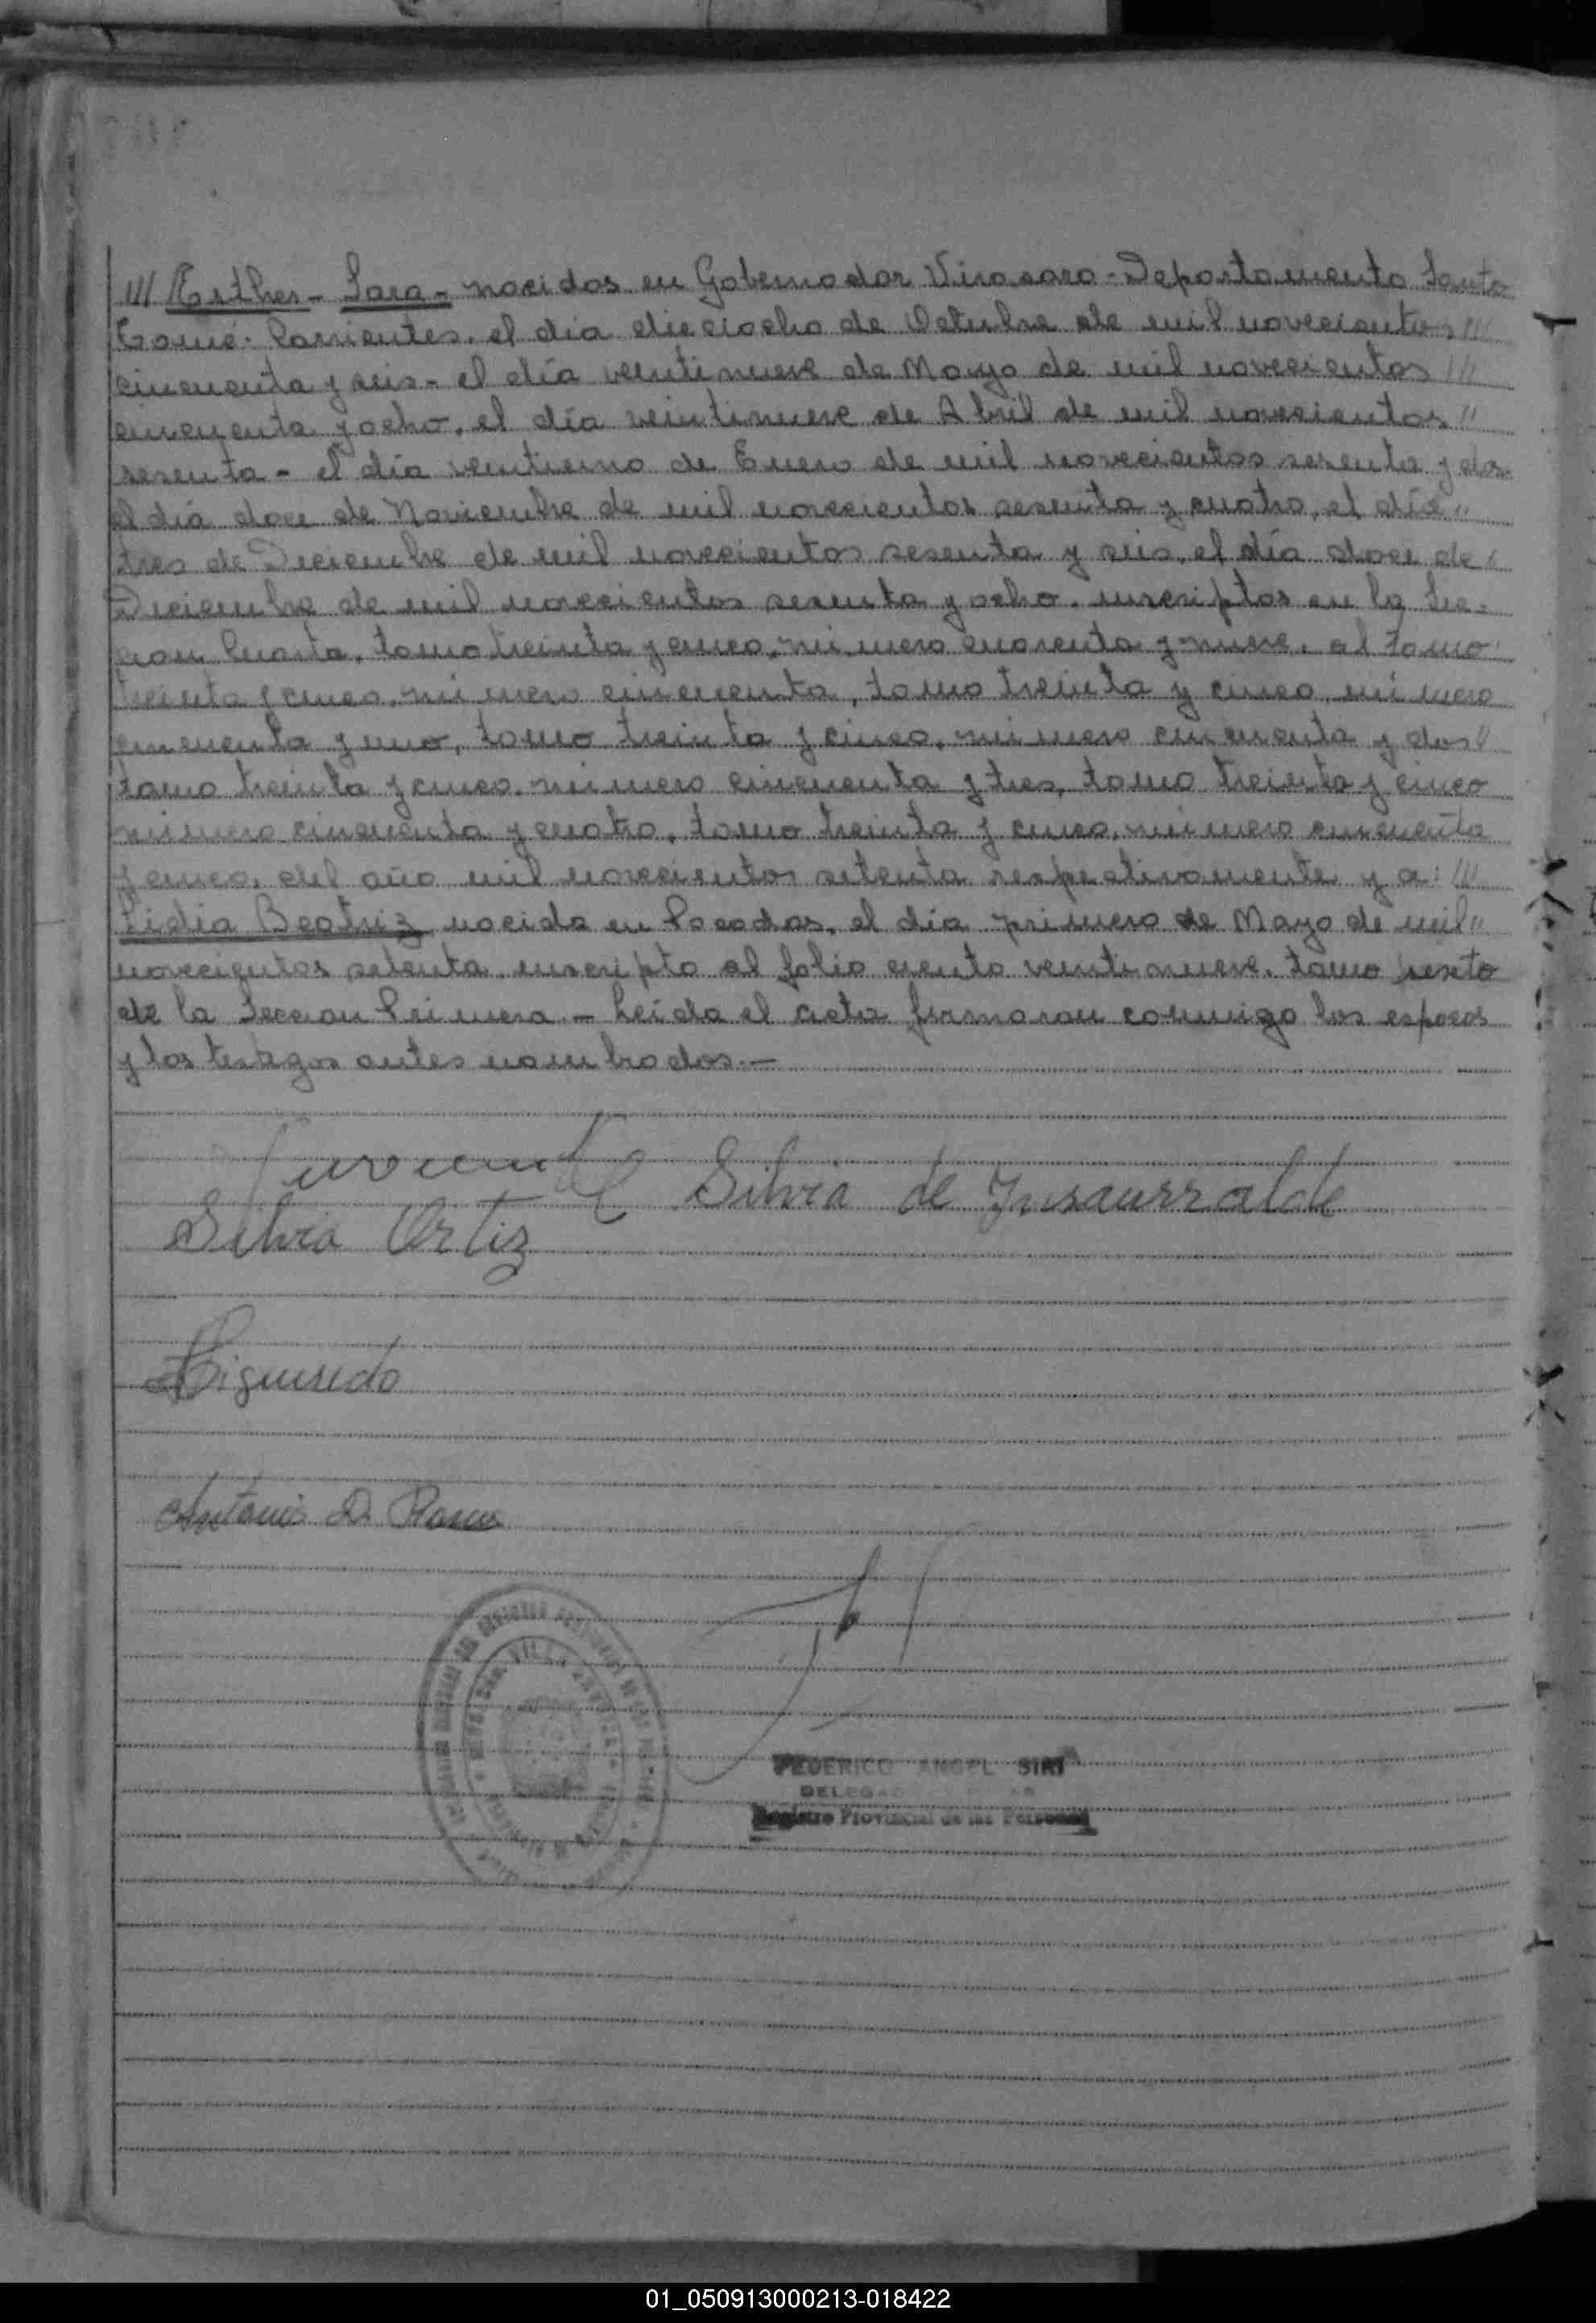 /// Esther - Sara - nacidos en Gobernador Virasoro - Departamento Santo
Tomé. Corrientes. el día dieciocho de Octubre de mil novecientos ///
cincuenta y seis - el día veintinueve de Mayo de mil novecientos ///
cincuenta y ocho, el día veintinueve de Abril de mil novecientos //
sesenta - el día veintiuno de Enero de mil novecientos sesenta y dos.
el día doce de Noviembre de mil novecientos sesenta y cuatro, el día //
tres de Diciembre de mil novecientos sesenta y seis, el día doce de /
Diciembre de mil novecientos sesenta y ocho. inscriptos en la Sec-
cion Cuarta, tomo treinta y cinco, número cuarenta y nueve, al tomo
treinta y cinco, número cincuenta, tomo treinta y cinco, número
cincuenta y uno, tomo treinta y cinco, número cincuenta y dos /
tomo treinta y cinco, número cincuenta y tres, tomo treinta y cinco
número cincuenta y cuatro, tomo treinta y cinco, número cincuenta
y cinco, del año mil novecientos setenta respectivamente y a: ///
Lidia Beatriz nacida en Posadas, el día primero de Mayo de mil //
novecientos setenta, inscripta al folio ciento veintinueve, tomo sexto
de la Seccion Primera - Leída el acta firmaron conmigo los esposos
y los testigos antes nombrados.-
Silvia de Insaurralde
Silvia Ortiz
Figueredo
Antonio D. Ramos
FEDERICO ANGEL SIRI
Registro Provincial de las Personas
01_050913000213-018422